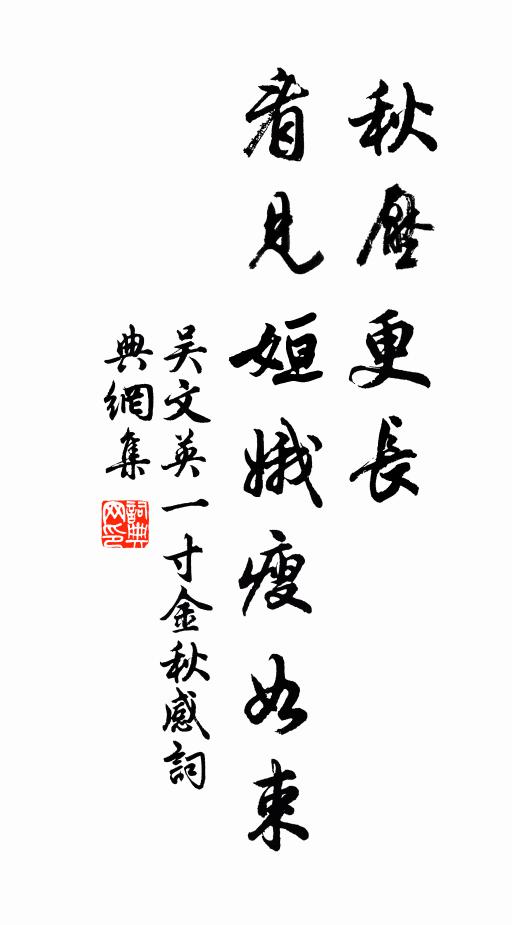 秋壓更長
看見姮娥瘦如束
吳文英一寸金秋感詞
典網集
詞典網印